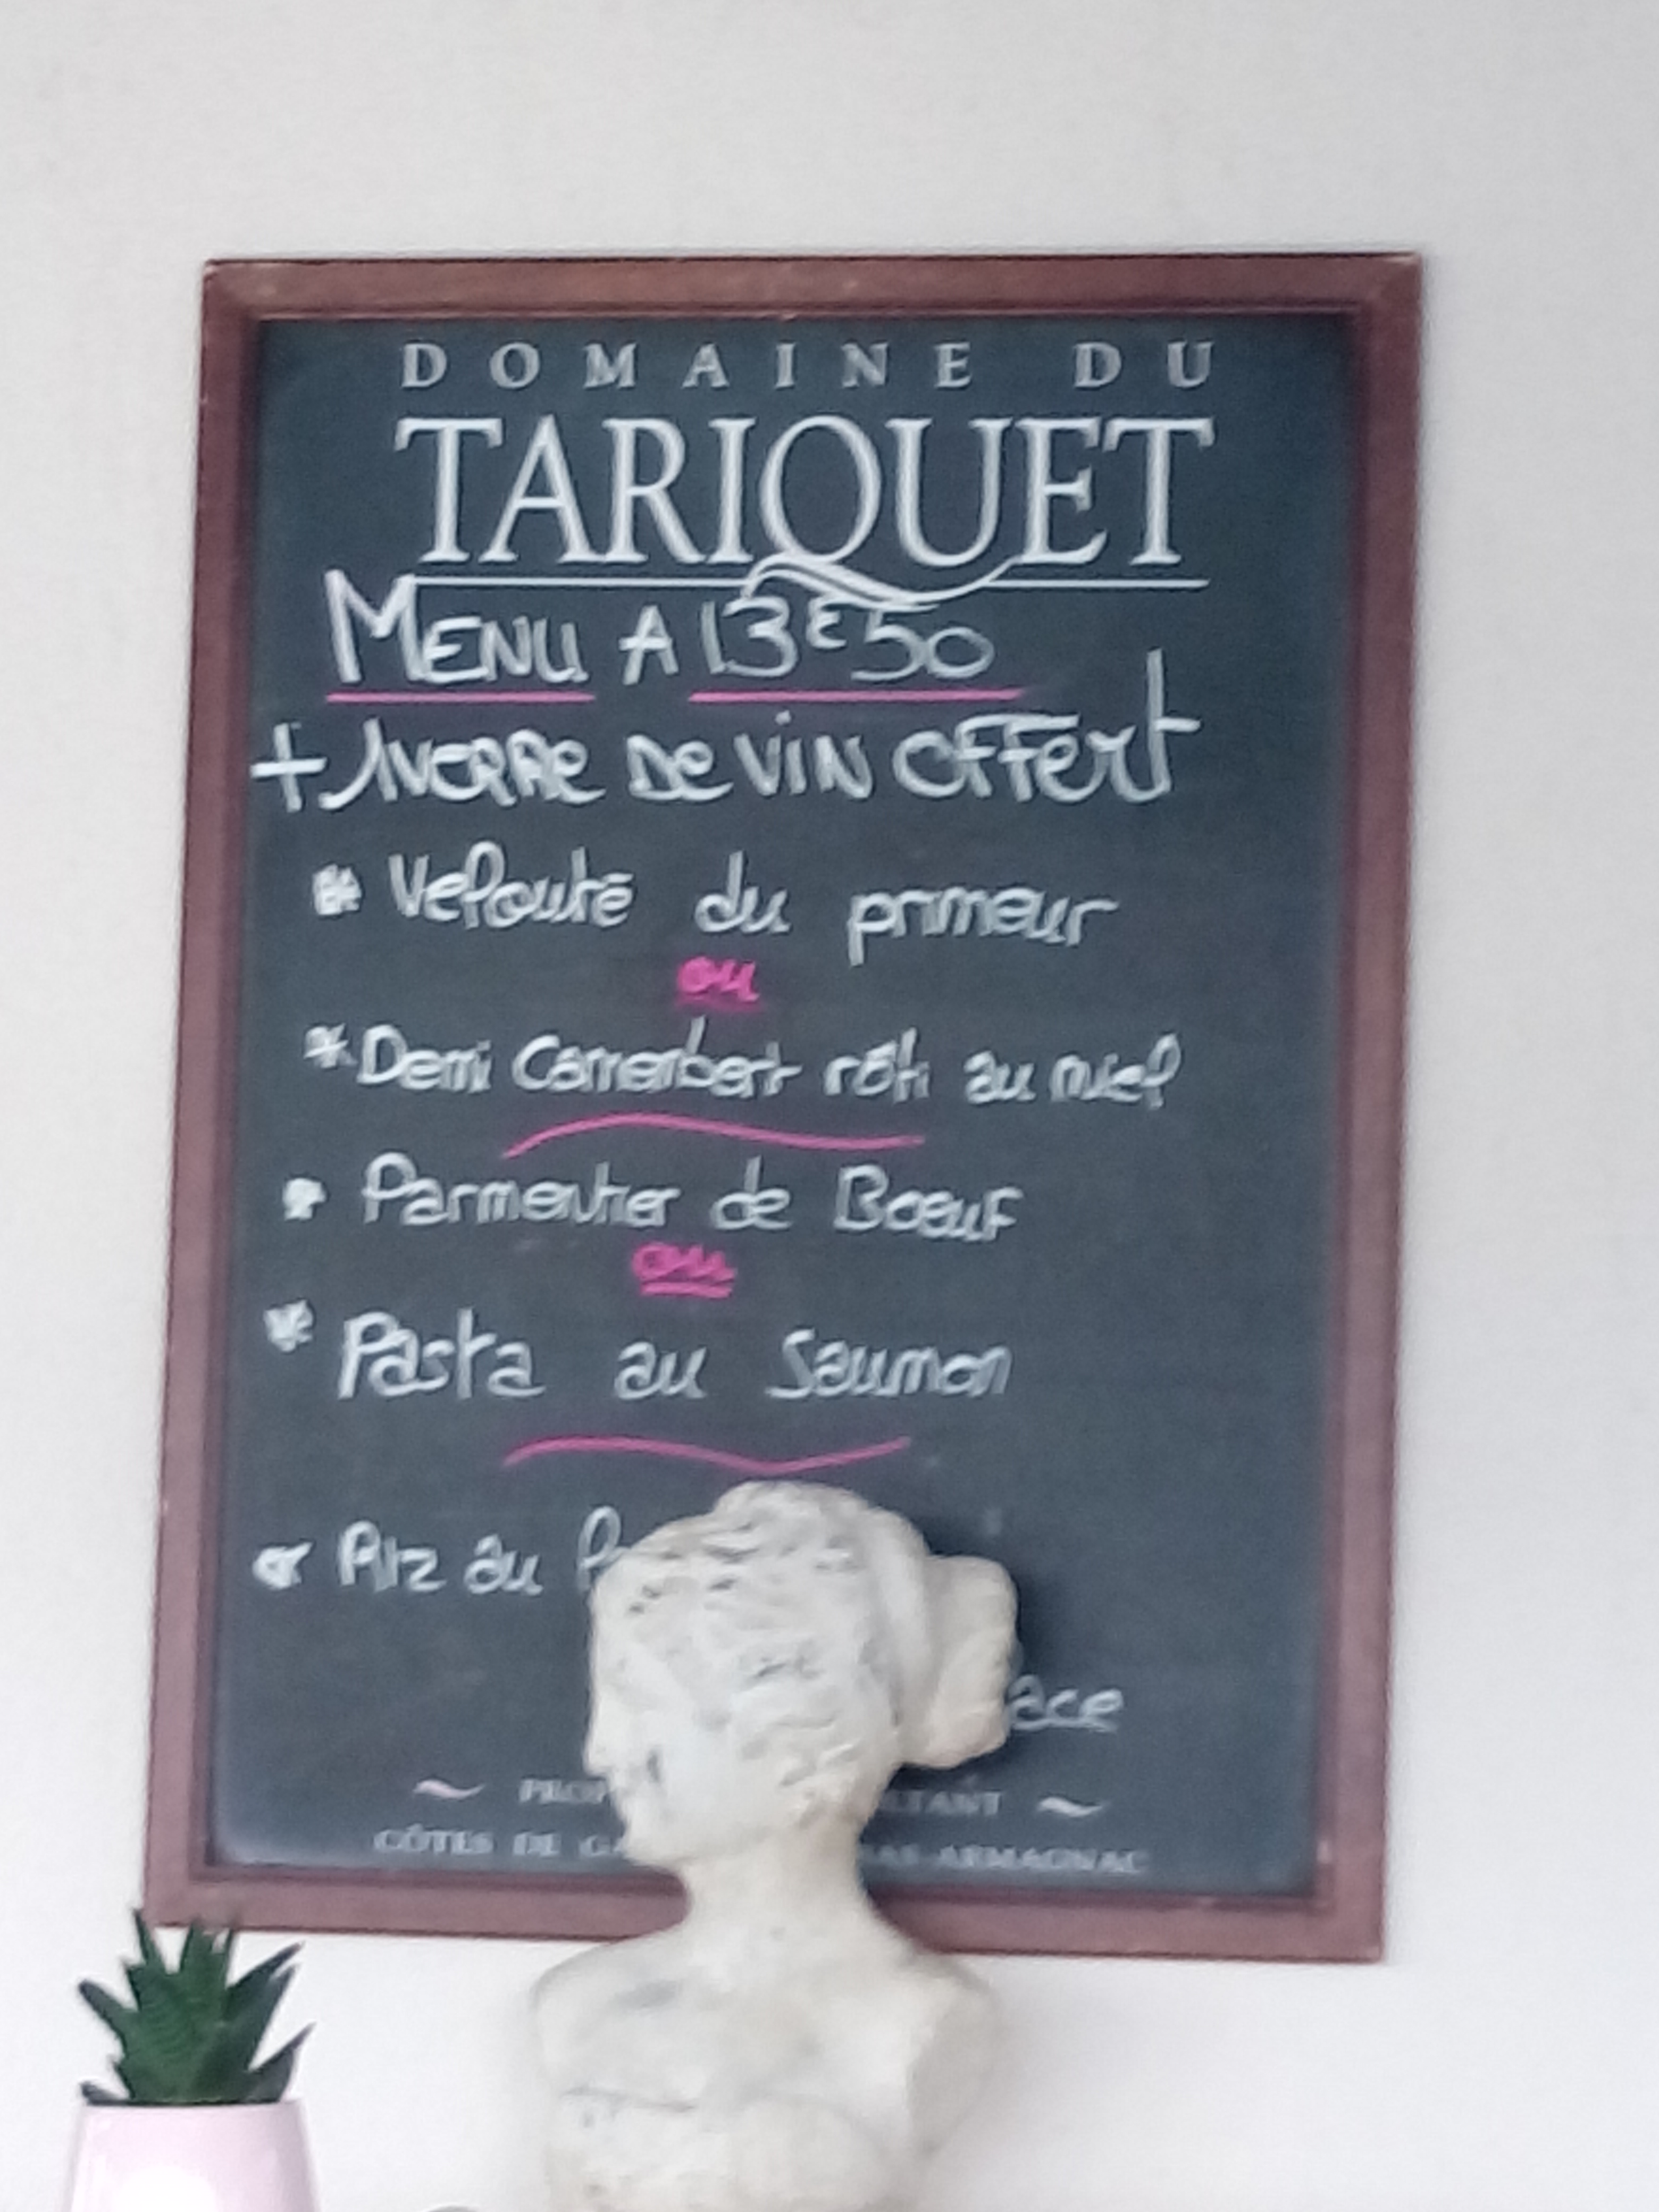 DOMAINE DU
TARIQUET
MENU A 13€50
+ 1 VERRE DE VIN OFFERT
* Velouté du primeur
ou
* Demi Camembert rôti au miel
* Parmentier de Boeuf
ou
* Pasta au Saumon
* Riz au
CÔTES DE BAS-ARMAGNAC